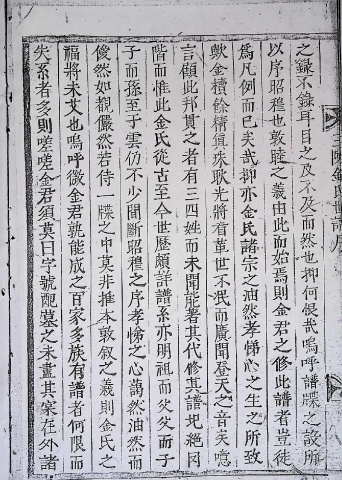 之錄不錄耳目之及不及而然也抑何恨哉嗚呼譜牒之設所
以序昭穆也敦睦之義由此而始焉則金君之修此譜者豈徒
爲凡例而已矣哉抑亦金氏諸宗之油然孝悌心之生之所致
歟金櫝餘精眞珠耿光將看葦世不泯而廣聞登天之音矣噫
言顧此邦貫之者有三四姓而未聞能著其代修其譜屺絕罔
階而惟此金氏從古至今世歷頗詳譜系亦明祖而父父而子
子而孫至于雲仍不少間斷昭穆之序孝悌之心藹然油然而
僾然如覩儼然若待一牒之中莫非推本敦叙之義則金氏之
福將未艾也嗚呼微金君孰能成之百家多族有譜者何限而
失系者多則嗟嗟金君須莫曰字號配墓之未盡其案在外諸
金氏世譜序